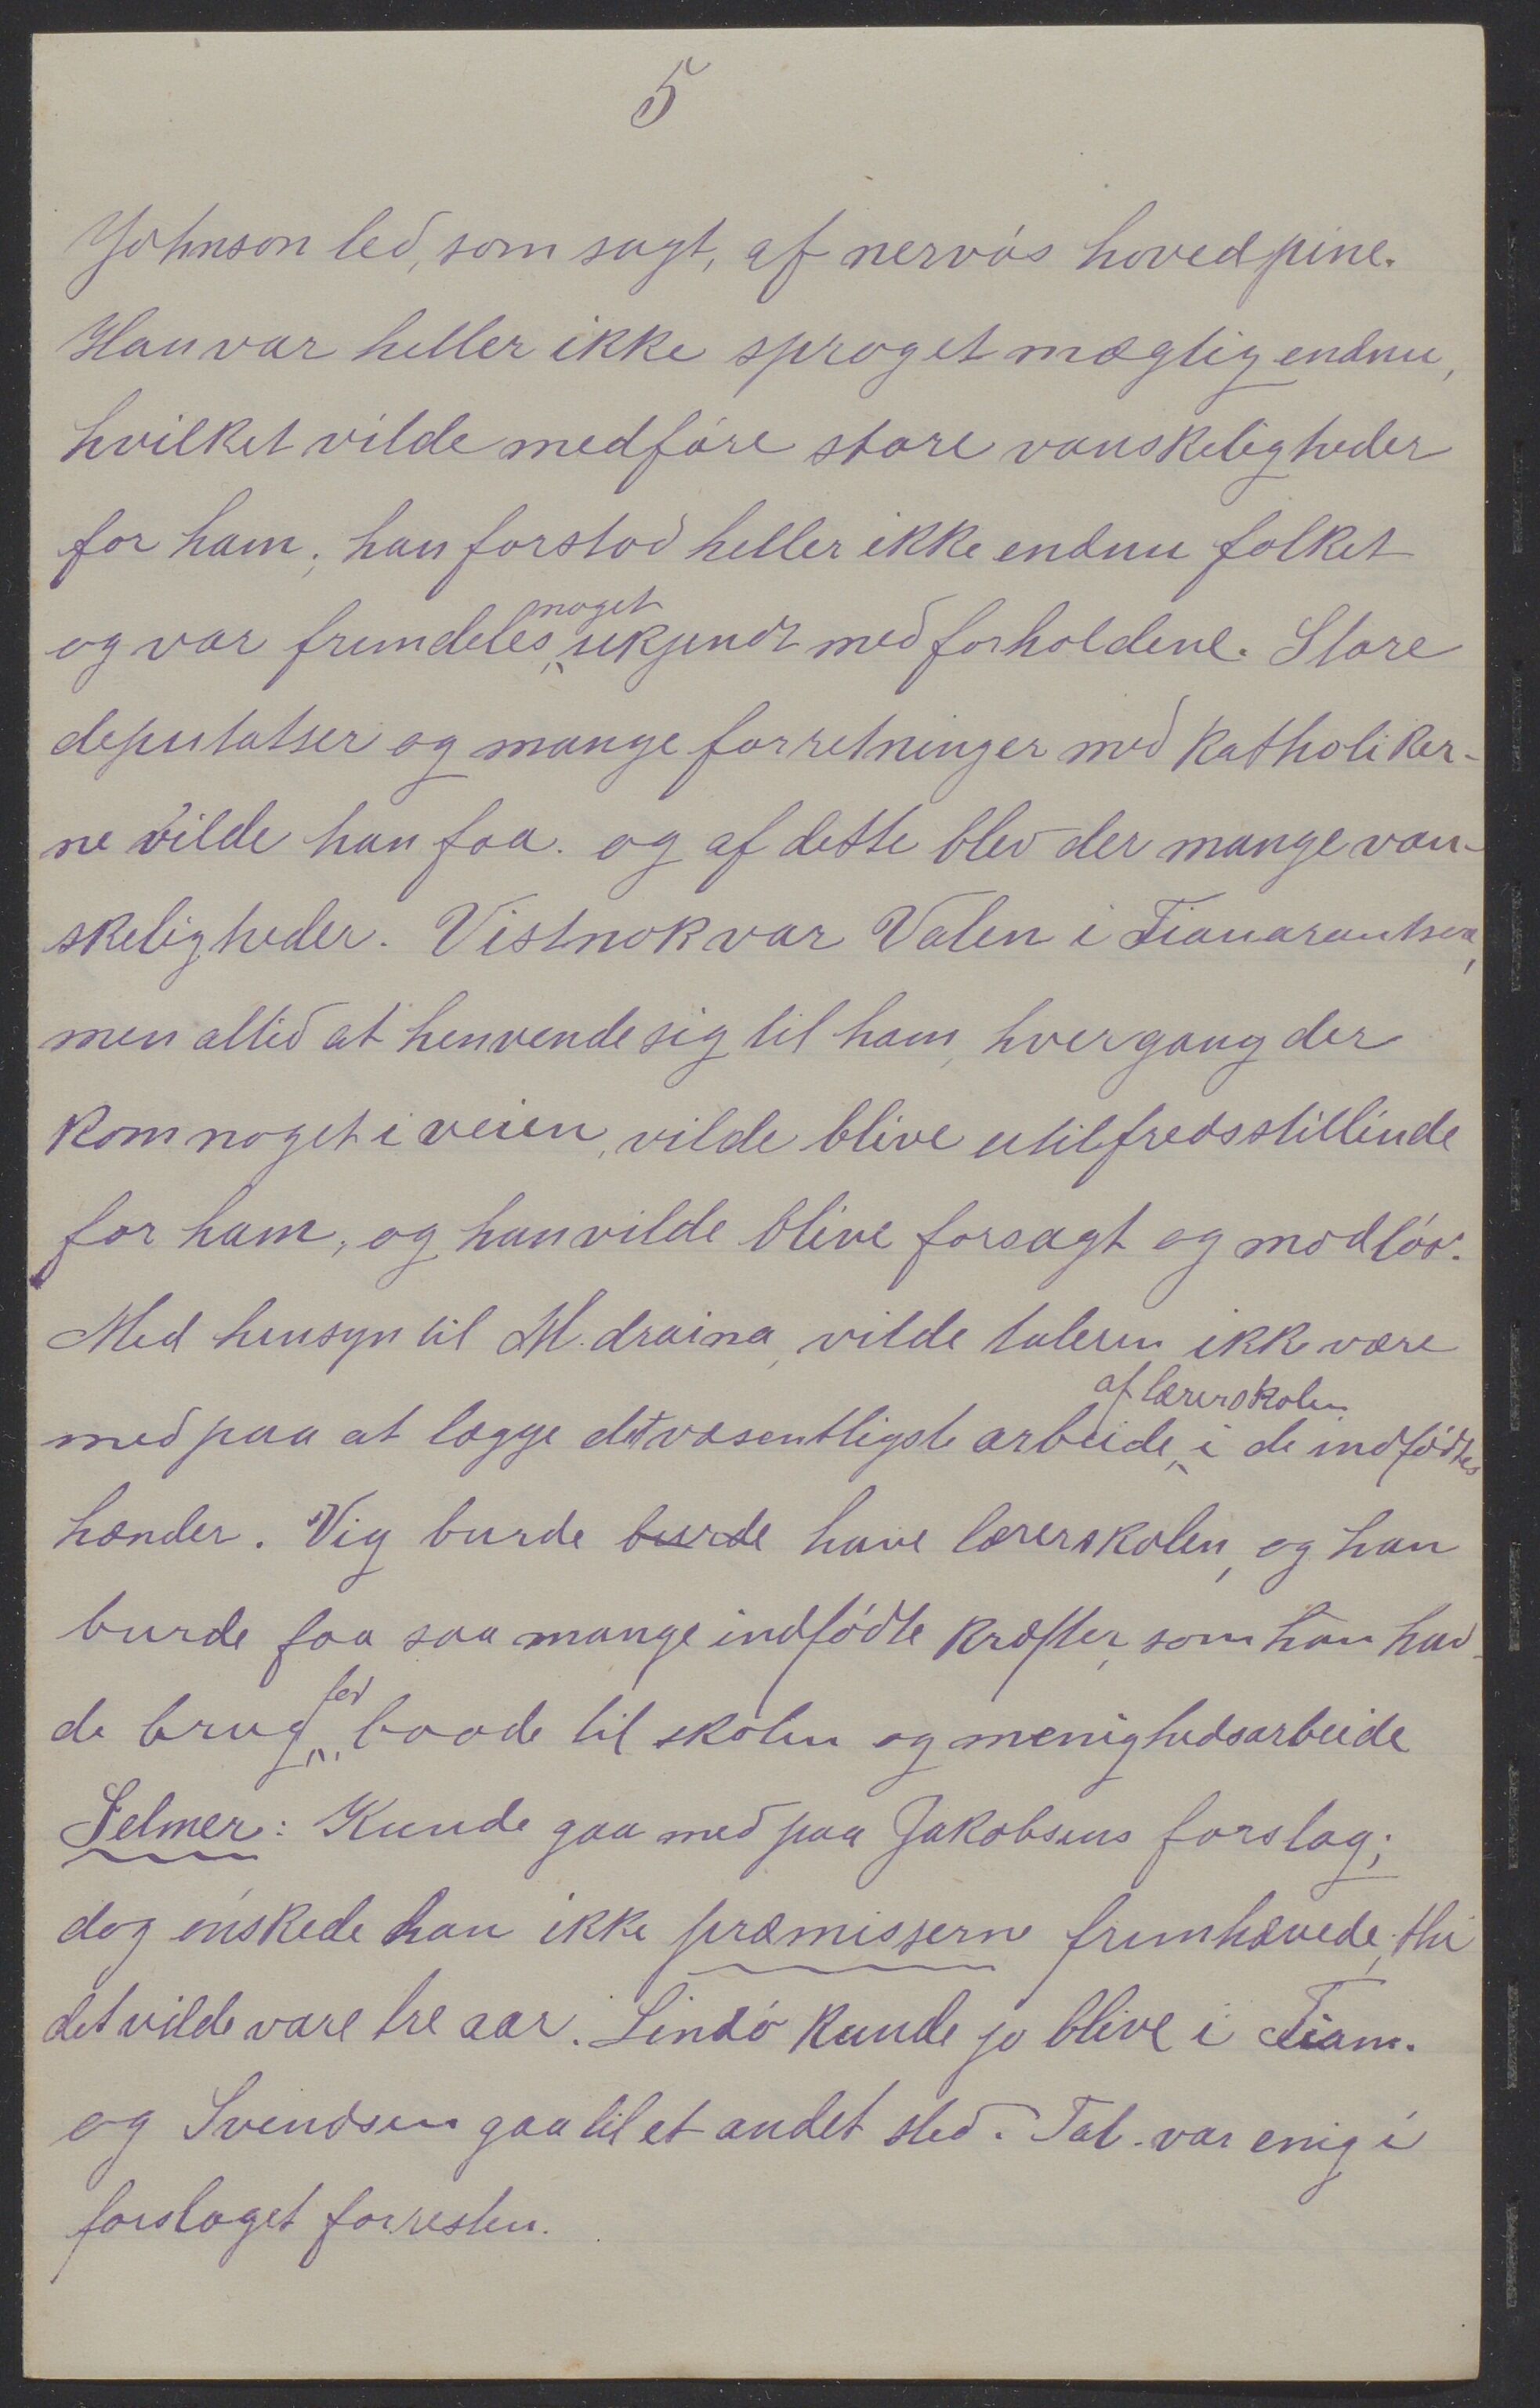 5
Johnson led, som sagt, af nervøs hovedpine.
Han var heller ikke sproget mægtig endnu,
hvilket vilde medføre store vanskeligheder
for ham; han forstod heller ikke endnu folket
og var fremdeles noget ukjendt med forholdene. Store
deputatser og mange forretninger med katholiker-
ne vilde han faa. og af dette blev der mange van-
skeligheder. Vistnok var Valen i Fianarantsoa,
men altid at henvende sig til ham, hver gang der
kom noget i veien, vilde blive utilfredsstillende
for ham, og han vilde blive forsagt og modløs.
Med hensyn til M.draina, vilde taleren ikke være
med paa at lægge det væsentligste arbeide af lærerskolen i de indfødtes
hænder. Vig burde burde have lærerskolen, og han
burde faa saa mange indfødte kræfter, som han hav-
de brug for baade til skolen og menighedsarbeide
Selmer: Kunde gaa med paa Jakobsens forslag;
dog ønskede han ikke præmisserne fremhævede; thi
det vilde vare tre aar. Lindø kunde jo blive i Fian.
og Svendsen gaa til et andet sted. Tal. var enig i
forslaget forresten.